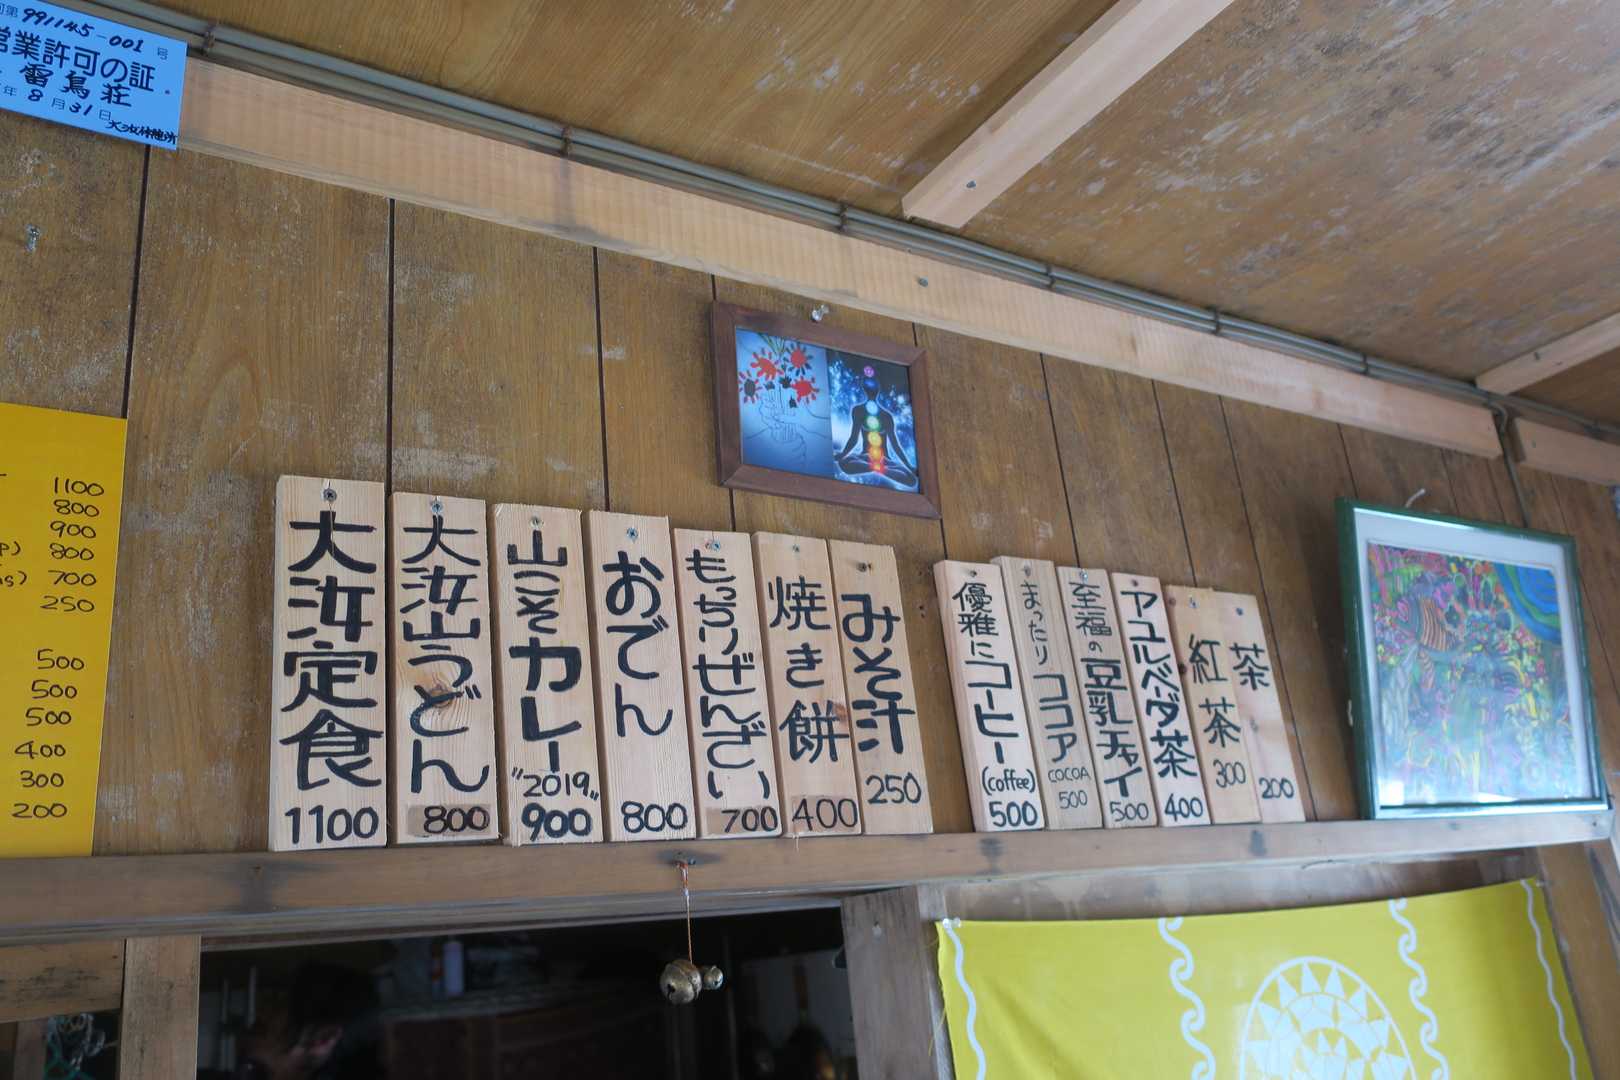 第991145-001号
営業許可の証
雷鳥荘
年8月31日
大汝休憩所
1100
800
900
800
700
250
500
500
500
400
300
200
大汝定食
1100
大汝山うどん
800
山こそカレー
"2019"
900
おでん
800
もっちりぜんざい
700
焼き餅
400
みそ汁
250
優雅にコーヒー
(coffee)
500
まったりココア
COCOA
500
至福の豆乳チャイ
500
アユルベーダ茶
400
紅茶
300
茶
200